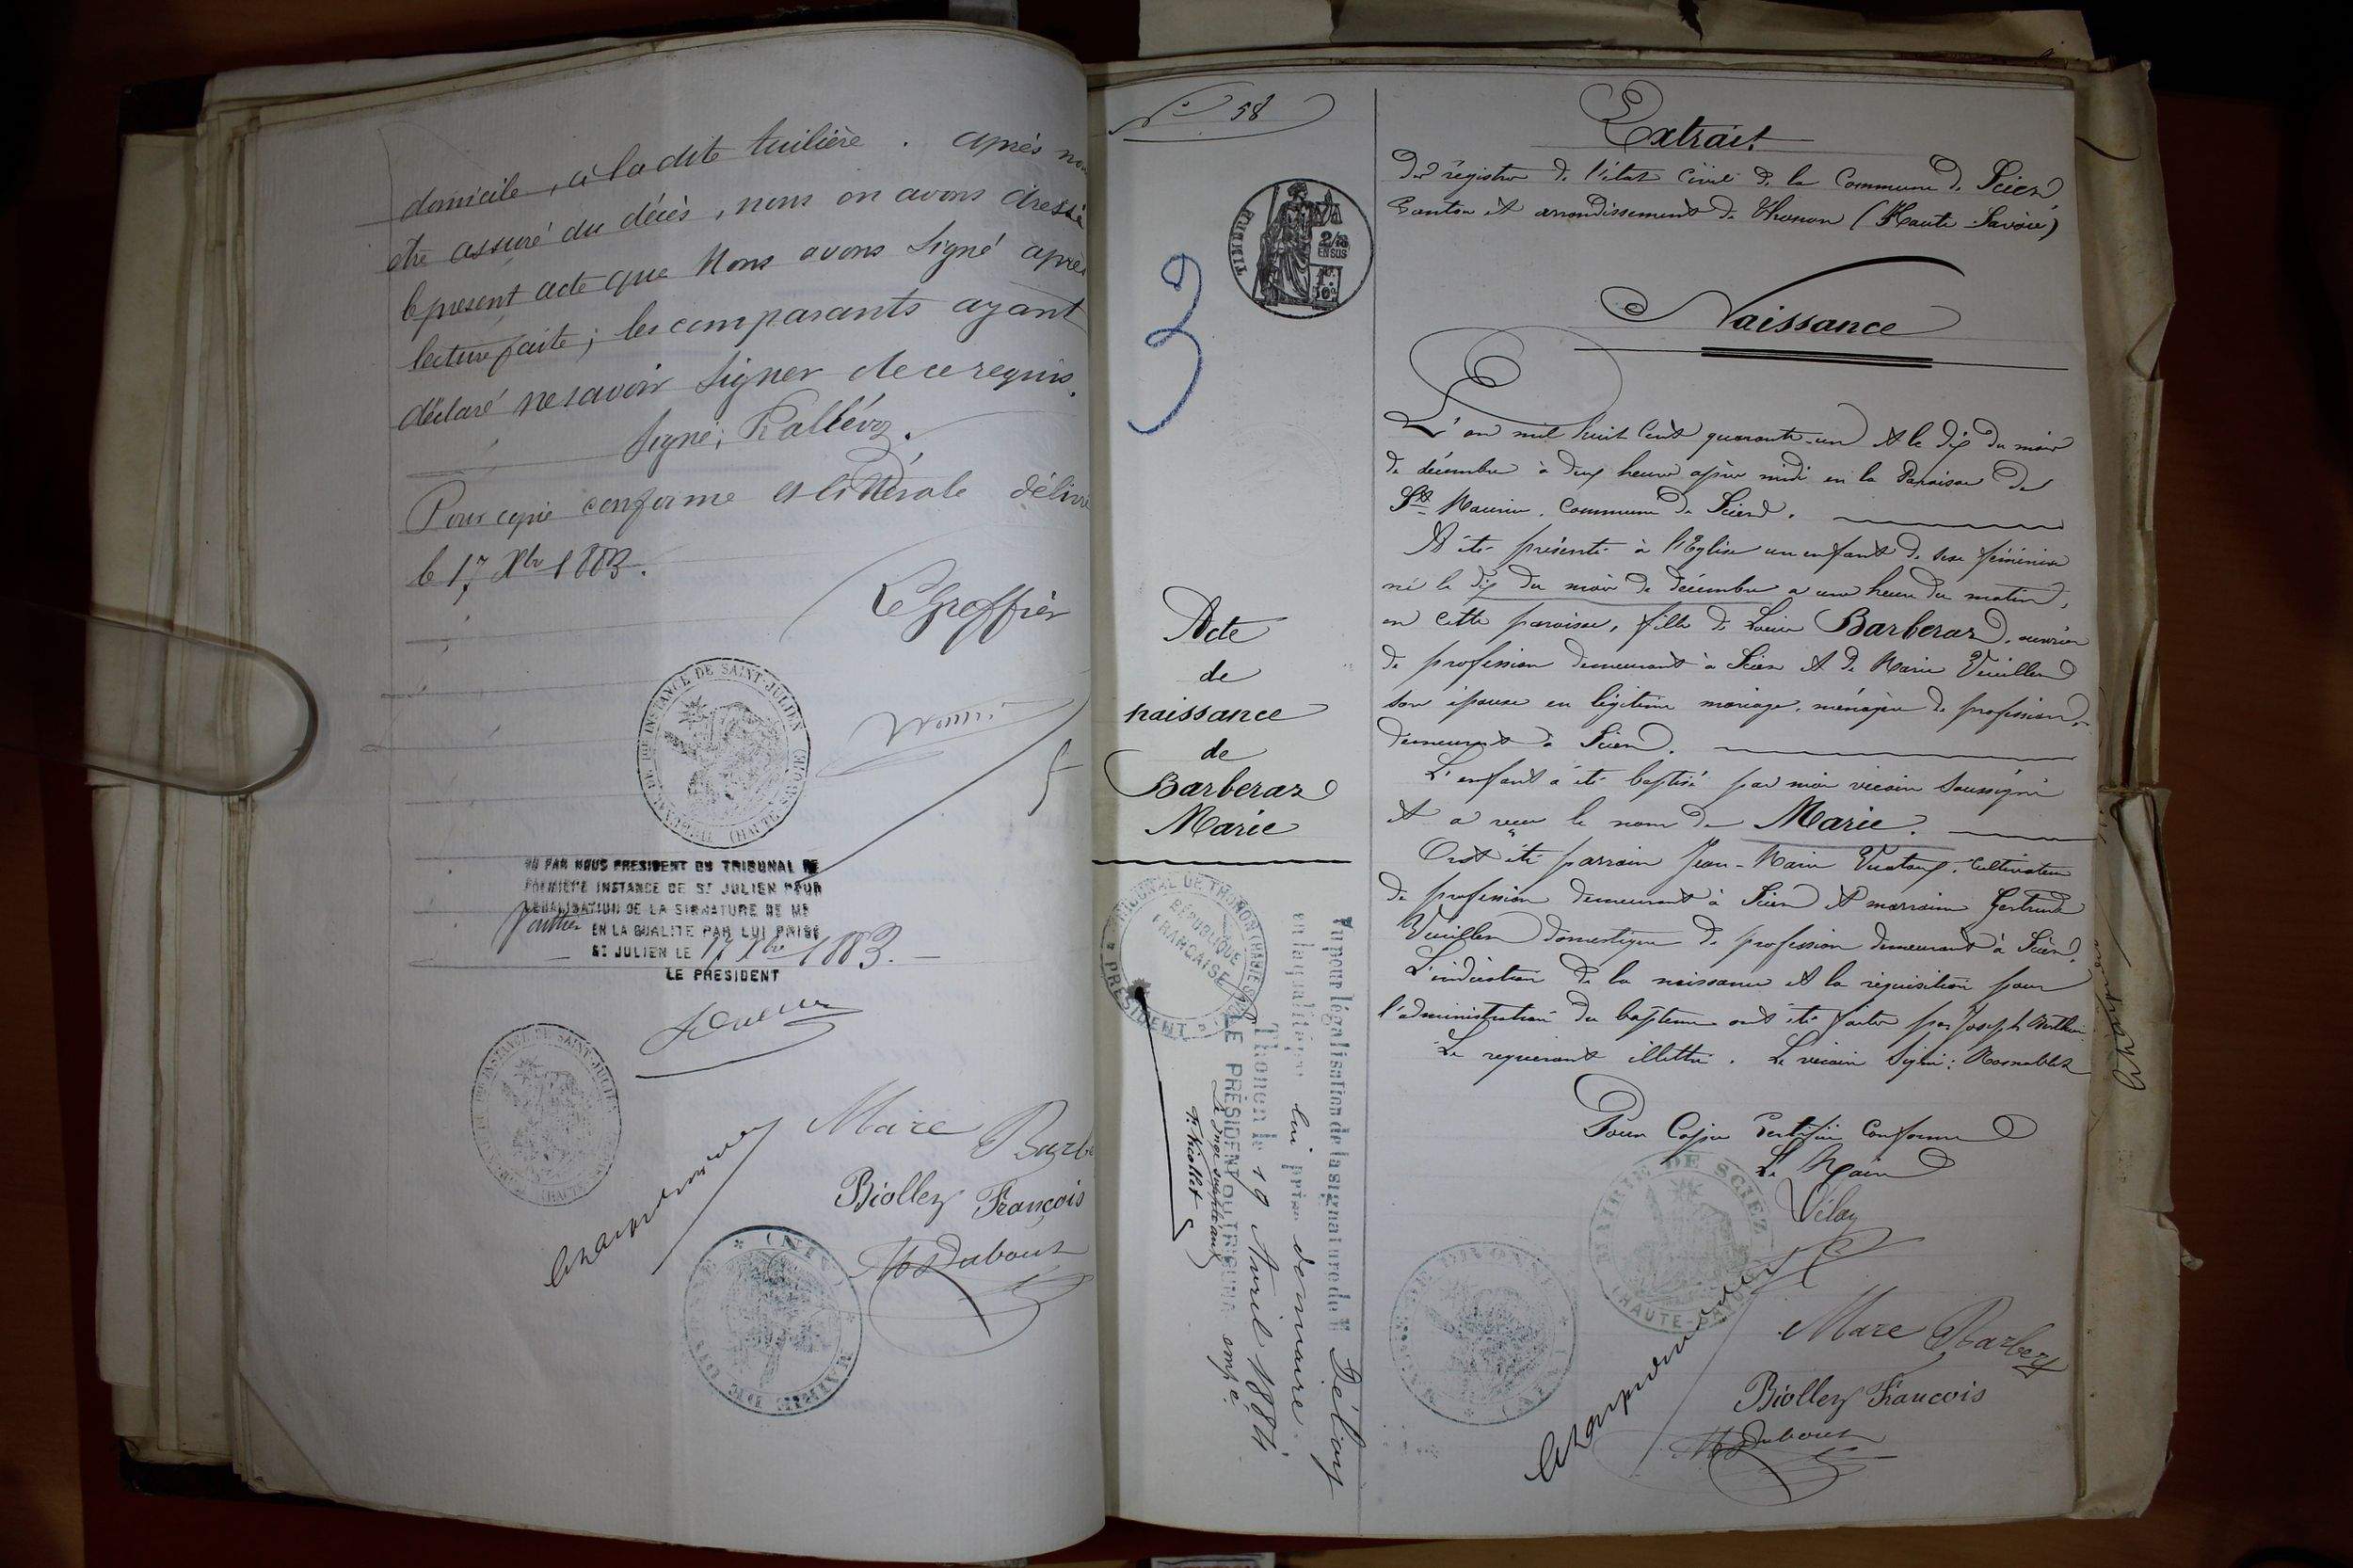 domicile, à la dite tuilière. après nous
être assuré du décès, nous en avons dressé
le présent acte que Nous avons signé après
lecture faite; les comparants ayant
déclaré ne savoir signer de ce requis.
Signé:
Pour copie conforme et littérale délivré
le 17 Xbre 1883.
Le Greffier
TRIBUNAL DE 1RE INSTANCE DE SAINT-JULIEN (HAUTE
VU PAR NOUS PRESIDENT DU TRIBUNAL DE
PREMIERE INSTANCE DE ST JULIEN POUR
LEGALISATION DE LA SIGNATURE DE ME
EN LA QUALITE PAR LUI PRISE
ST JULIEN LE 17 Xbre 1883.
LE PRESIDENT
Marc Barbe
Biolley François
Dubouz
N° 58
TIMBRE
2/10
EN SUS
3
Acte
de
naissance
de
Barberaz
Marie
TRIBUNAL DE THONON (HAUTE SAVOIE)
RÉPUBLIQUE
FRANÇAISE
PRÉSIDENT
Vu pour légalisation de la signature de M Délay
en la qualité que lui prise de maire.
Thonon le 19 Avril 1884
LE PRÉSIDENT DU TRIBUNAL empé.
Le Juge suppléant
Nicollet
Extrait
Des régistres de l'état civil de la Commune de Sciez
Canton et arrondissement de Thonon (Haute-Savoie)
Naissance
L'an mil huit cent quarante-un et le dix du mois
de décembre à deux heures après midi en la Paroisse de
St Maurice, Commune de Sciez.
A été présenté à l'Eglise un enfant de sexe féminin
né le dix du mois de décembre a une heure du matin,
en cette paroisse, fille de Louis Barberaz, ouvrier
de profession demeurant à Sciez et de Marie Vuillez
son épouse en légitime mariage, ménagère de profession,
demeurant à Sciez.
L'enfant a été baptisé par moi vicaire soussigné
et a reçu le nom de Marie.
Ont été parrain Jean-Marie cultivateur
de profession demeurant à Sciez et marraine Gertrude
Vuillez domestique de profession demeurant à Sciez.
L'indication de la naissance et la réquisition pour
l'administration du baptême ont été faites par Joseph
Le requérant illettré. Le vicaire signé:
Pour Copie Certifiée Conforme
Le Maire
Délay
MAIRIE DE SCIEZ
(HAUTE-SAVOIE)
Marc Barbey
Biolley François
Dubouz